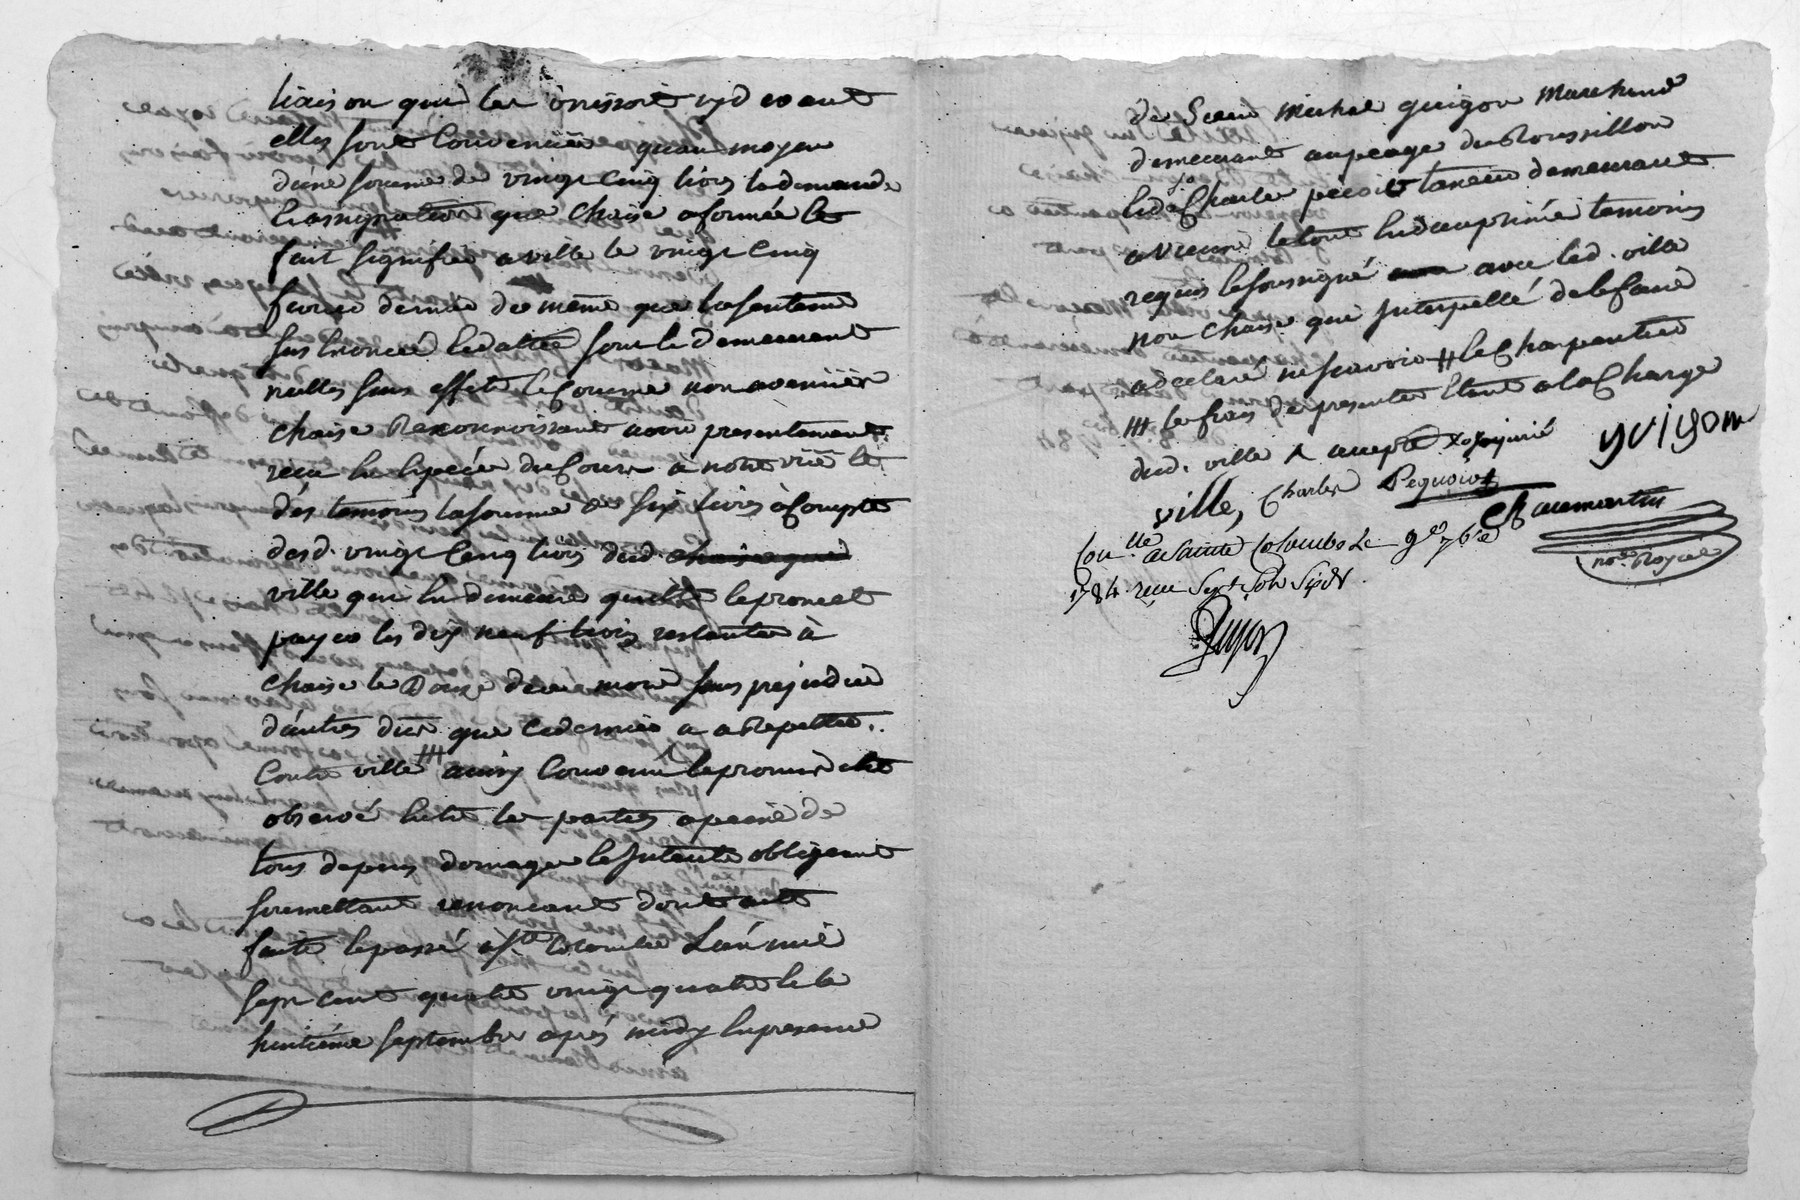 liaison que les unissoit cyd evant
elles sont Convenües quau moyen
dune somme de vingt Cinq livres la demande
En assignation que chaise a formée Et
fait signifier a ville le vingt Cinq
fevrier dernier de meme que la sentence
sus Enoncée Et datée sont Et demeurent
nulles sans effet Et Comme non avenües
chaise Reconnoissant avoir presentement
reçu En Especes du Cours à notre vüe Et
des temoins la somme de six livres à Compte
desd. vingt Cinq livres dud. chaise que
ville qui En demeure quitte Et promet
payer les dix neuf livres restantes à
chaise le Douze de ce mois sans prejudice
d'autres düs que ce dernier a a Repetter
Contre ville ₶ ainsy Convenu Et promis Etre
observé Entre les parties a peine de
tous depens domages Et Interets obligeant
soumettant renonçant dont acte
fait Et passé a Ste Colombe L'an mil
sept cent quatre vingt quatre Et le
huitieme septembre après midy En presence
de Sieur Michel guigon Marchand
demeurant au peage du Roussillon
Et de Sr Charle péqoit taneur demeurant
a Vienne Le tout En Dauphiné temoins
requis Et soussigné avec led. ville
non chaise qui Interpellé de le faire
a declaré ne sçavoir # Et Charpentier
₶ les frais des presentes Etant a la Charge
dud. ville
guigon
ville, Charles Pequoiot
Chaumartin
no.re Royal
Con.lle a Sainte Colombe Le 9e 7bre
1784 reçu
Guyot